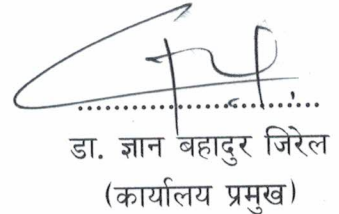 डा. ज्ञान बहादुर जिरेल
(कार्यालय प्रमुख)